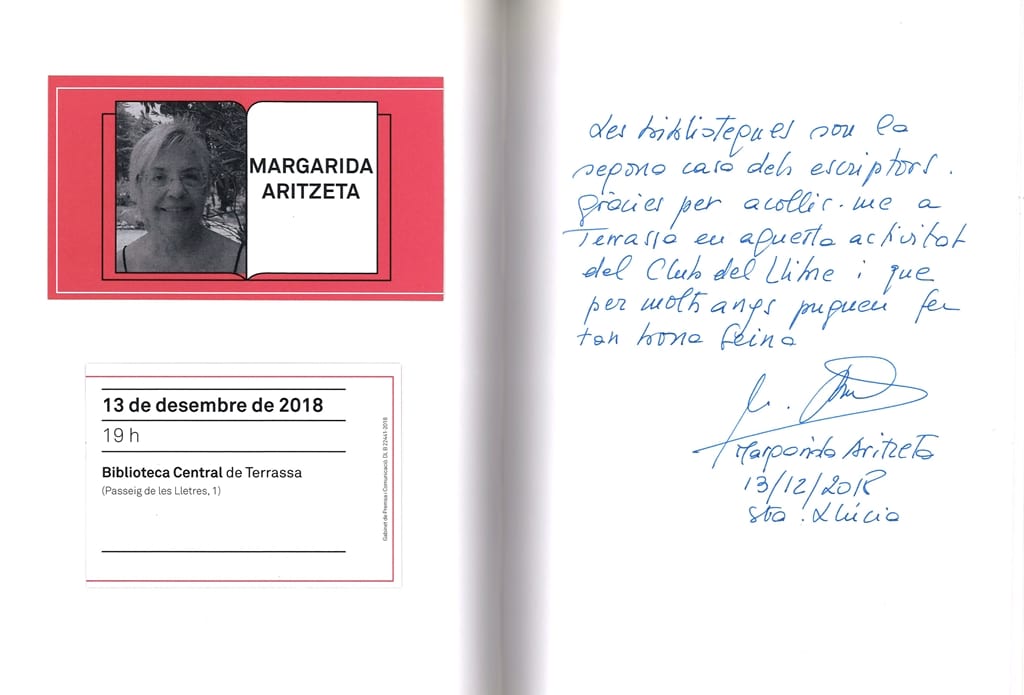 MARGARIDA
ARITZETA
13 de desembre de 2018
19 h
Biblioteca Central de Terrassa
(Passeig de les Lletres, 1)
Gabinet de Premsa i Comunicació DL B 22441-2018
Les biblioteques son la
segona casa dels escriptors.
Gràcies per acollir-me a
Terrassa en aquesta activitat
del Club del Llibre i que
per molts anys pugueu fer
tan bona feina
Margarida Aritzeta
13/12/2018
Sta. Llúcia